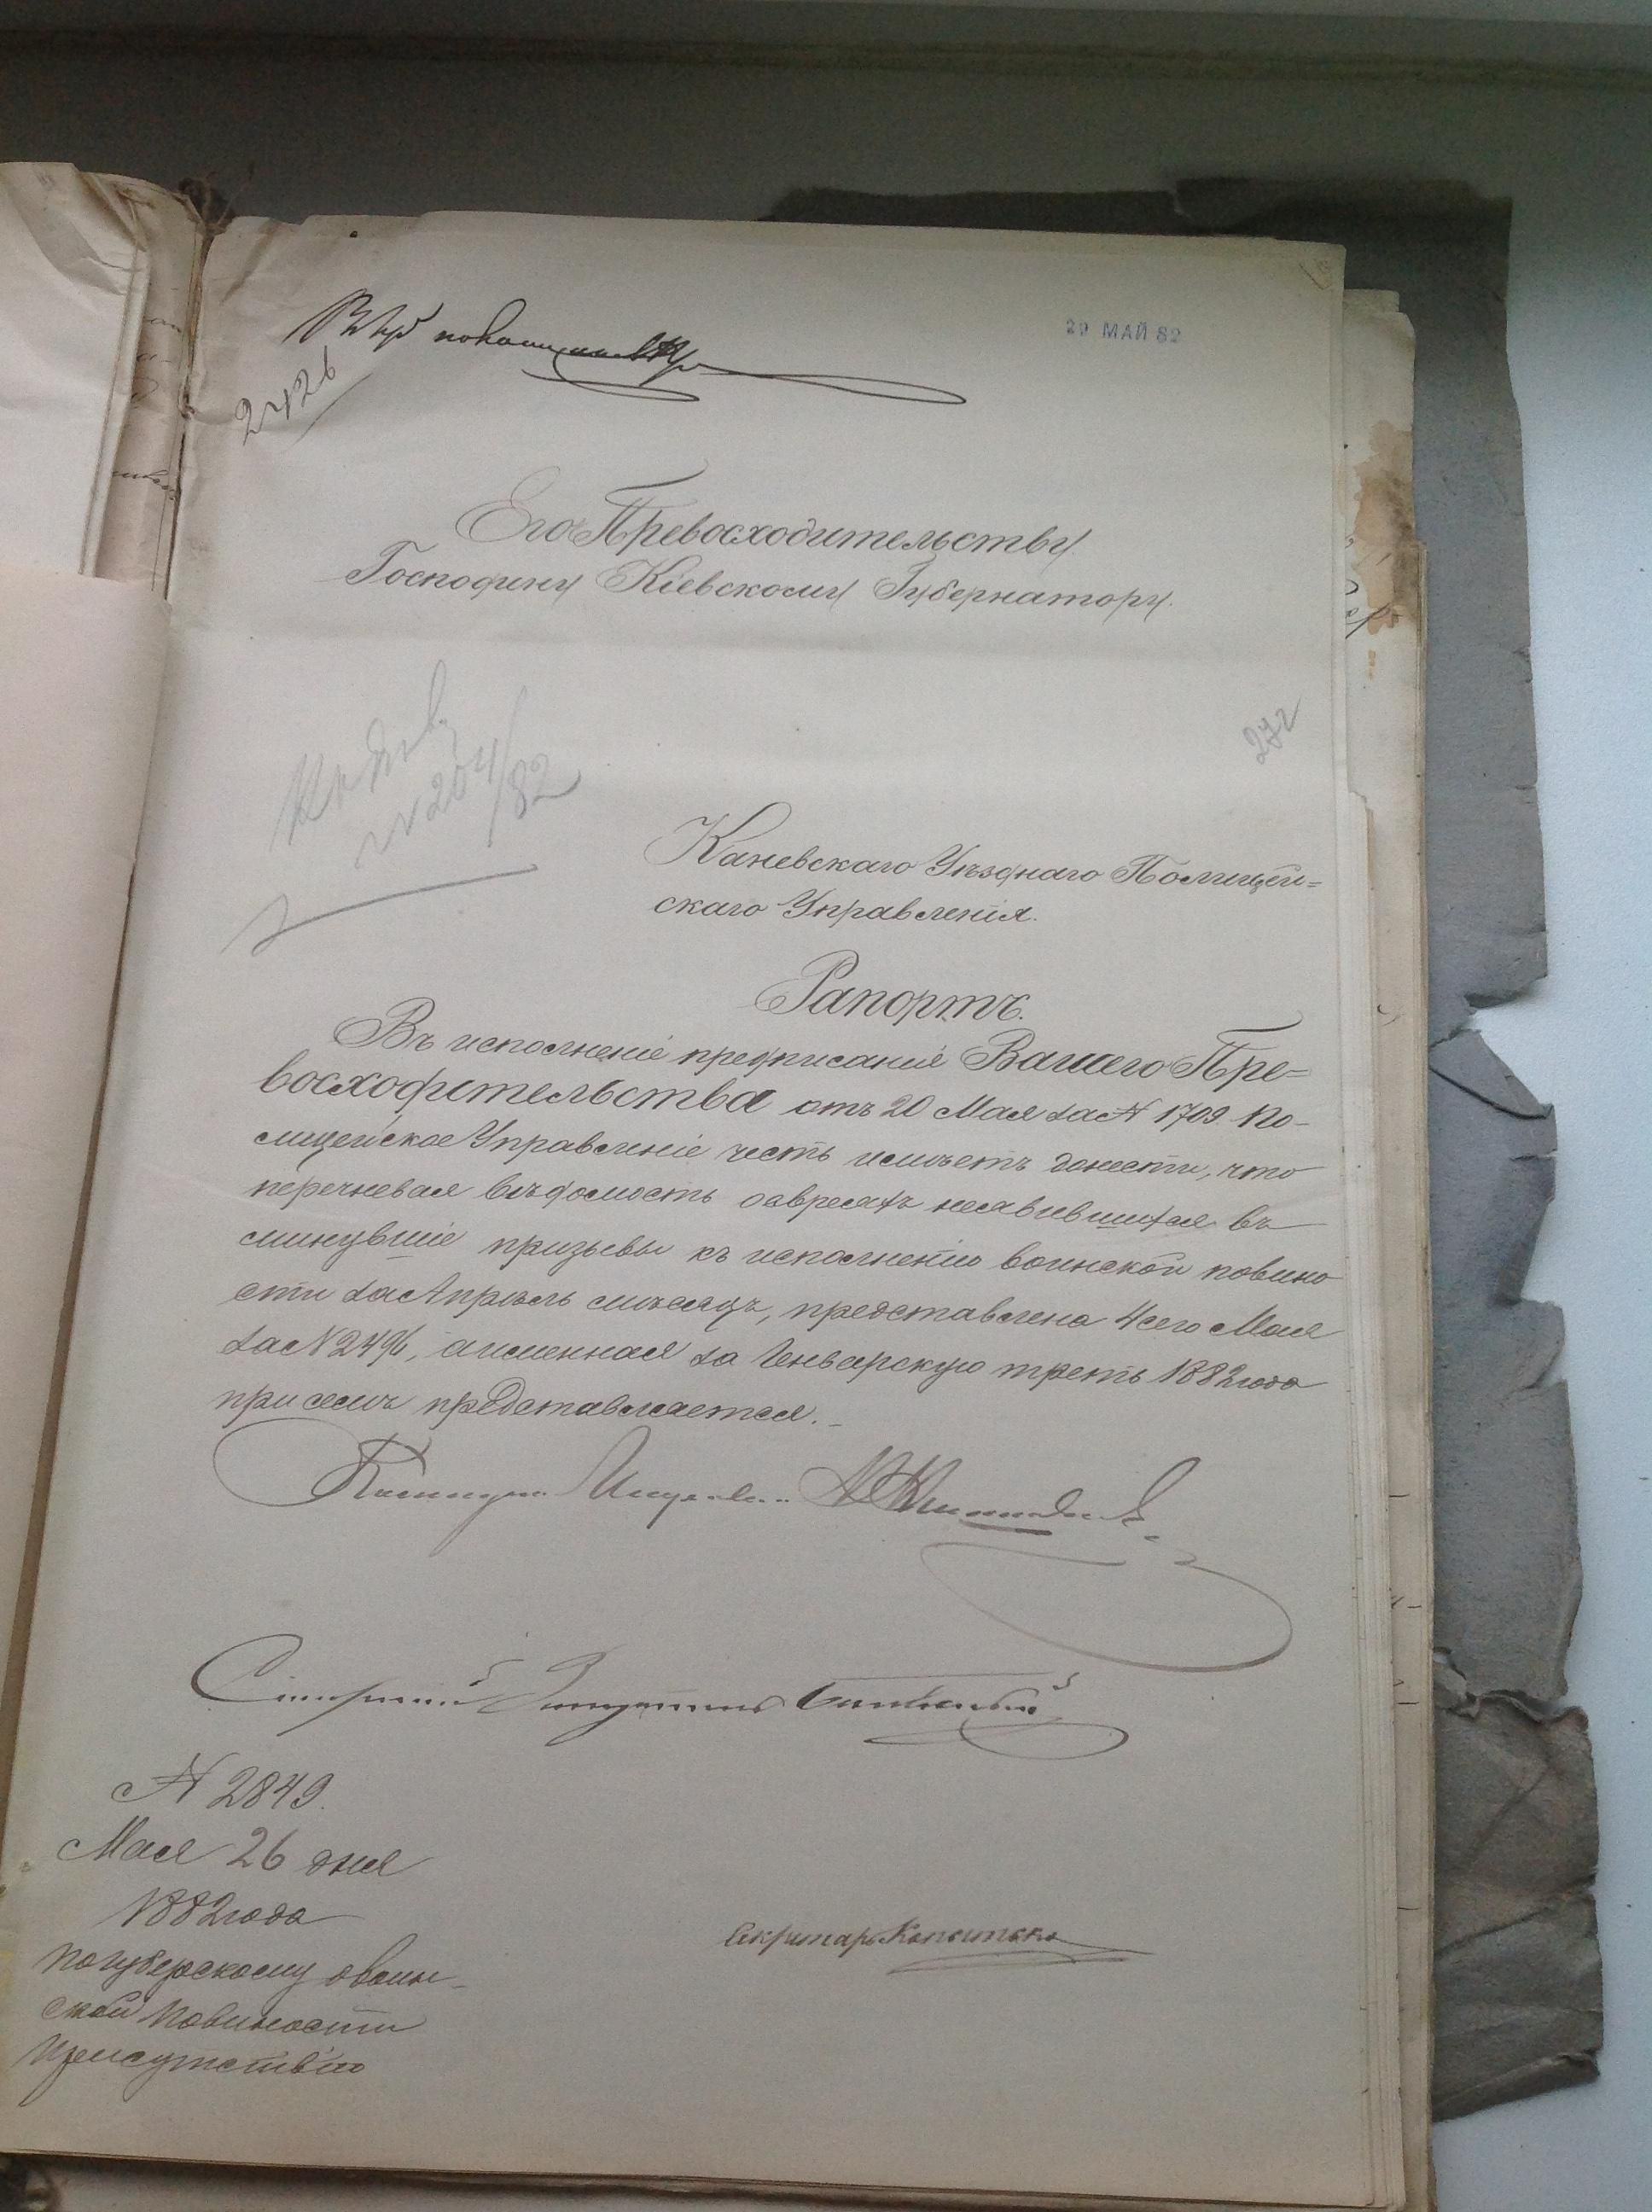 29 МАЙ 82
2426
Его Превосходительству
Господину Кіевскому Губернатору.
№ 204/82
272
Каневскаго Уѣзднаго Полицей=
скаго Управленія.
Рапортъ.
Въ исполненіе предписанія Вашего Пре=
восходительства отъ 20 Мая за № 1709 По-
лицейское Управленіе честь имѣетъ донести, что
перечневая вѣдомость о евреяхъ неявившихся въ
минувшіе призывы къ исполненію воинской повино
сти за Апрѣль мѣсяцъ, представлена 4 сего Мая
за № 2496, а именная за Генварскую треть 1882 года
при семъ представляется.
№ 2849.
Мая 26 дня
1882 года
По губерскому о воин-
ской повиности
присутствію
Секретарь